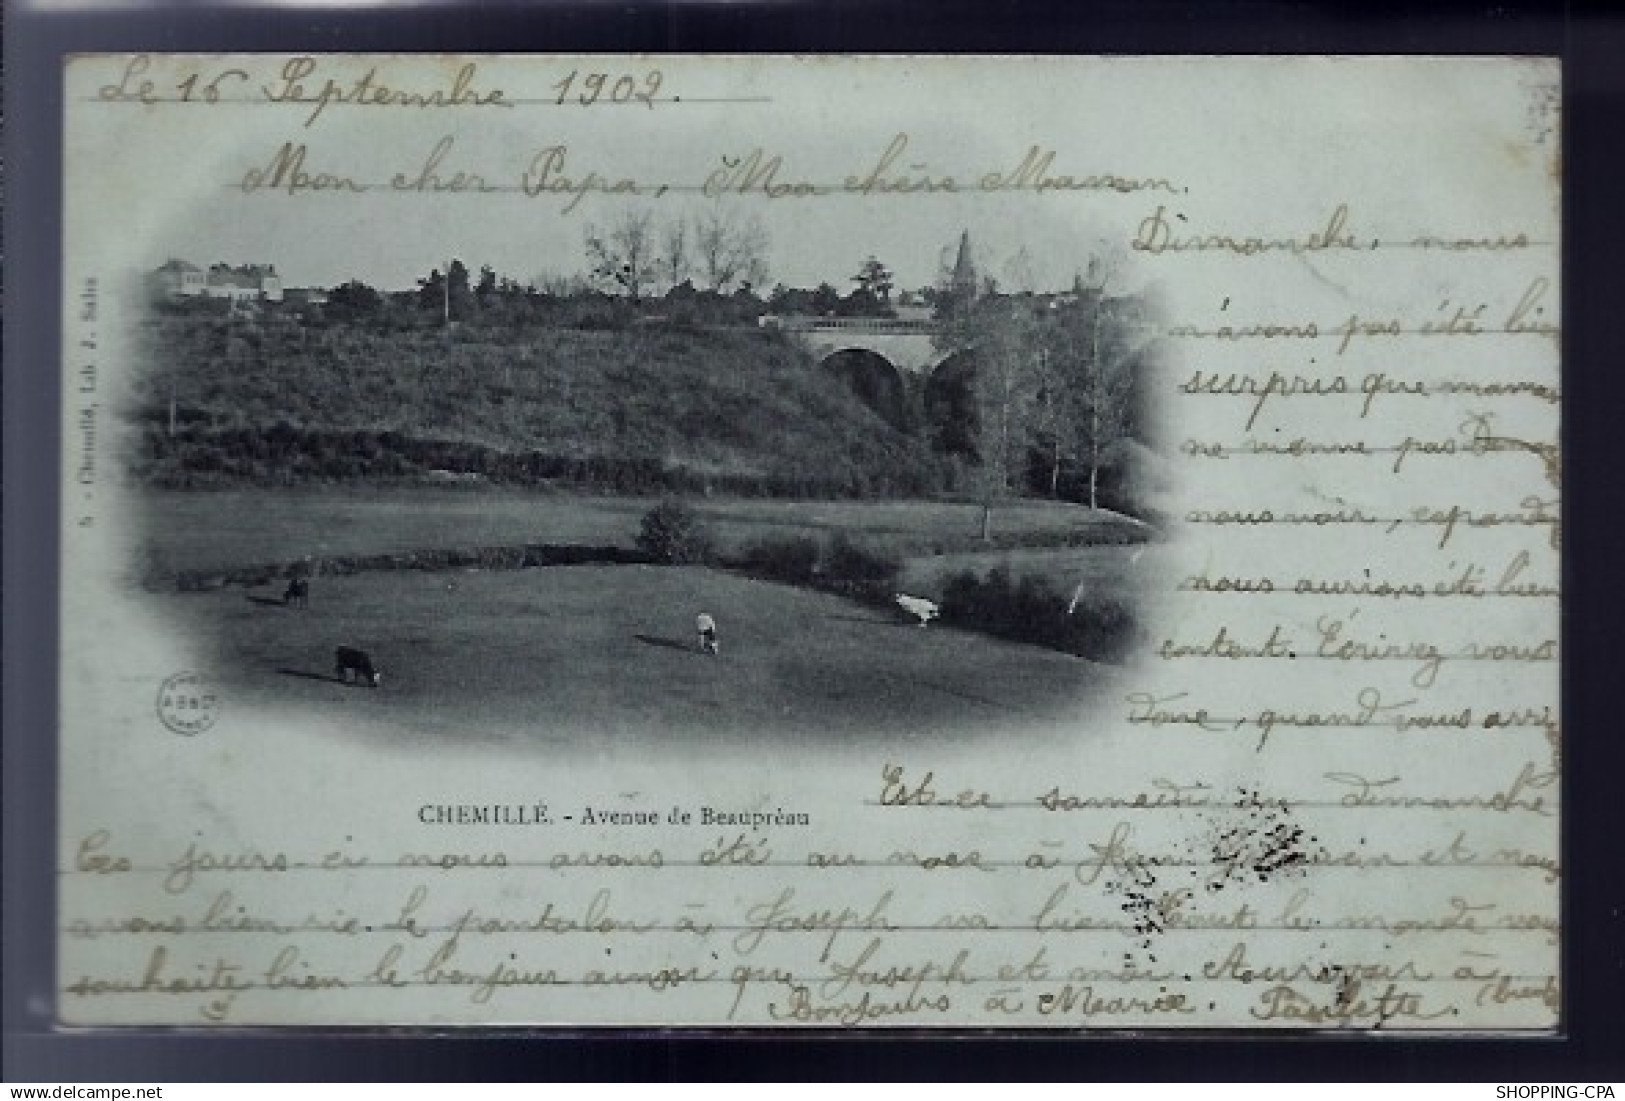 Le 16 Septembre 1902.
Mon cher Papa, Ma chère Maman.
Dimanche, nous
n'avons pas été bien
surpris que maman
ne vienne pas
nous voir, cependant
nous aurions été bien
content. Écrivez vous
donc, quand vous arri
Est-ce samedi ou dimanche
CHEMILLÉ. - Avenue de Beaupréau
Ces jours-ci nous avons été au noce à et nous
avons bien rie. Le pantalon à Joseph va bien tout le monde vous
souhaite bien le bonjour ainsi que Joseph et moi. Aurevoir à
Bonjours à Marie. Paulette.
5 - Chemillé, Lib. J.
delcampe.net
SHOPPING-CPA